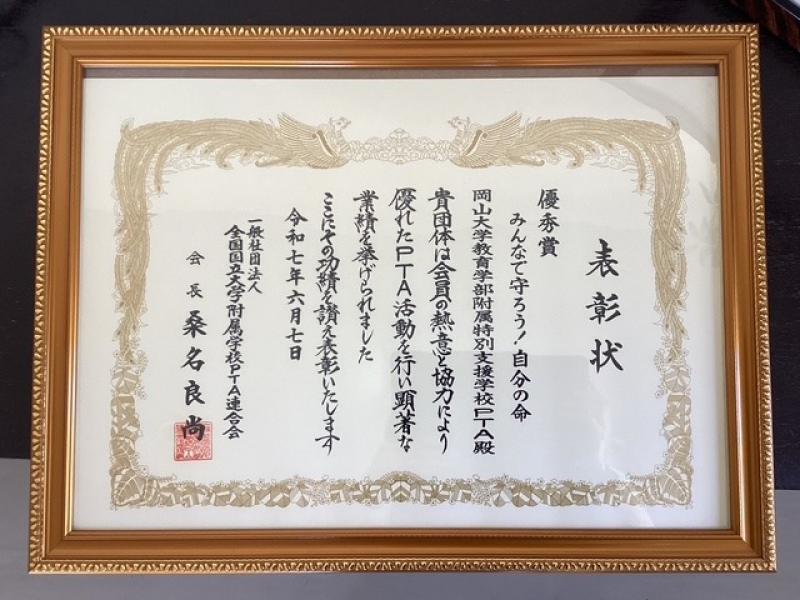 表彰状
優秀賞
みんなで守ろう!自分の命
岡山大学教育学部附属特別支援学校PTA殿
貴団体は会員の熱意と協力により
優れたPTA活動を行い顕著な
業績を挙げられました
ここにその功績を讃え表彰いたします
令和七年六月七日
一般社団法人
全国国立大学附属学校PTA連合会
会長 桑名良尚